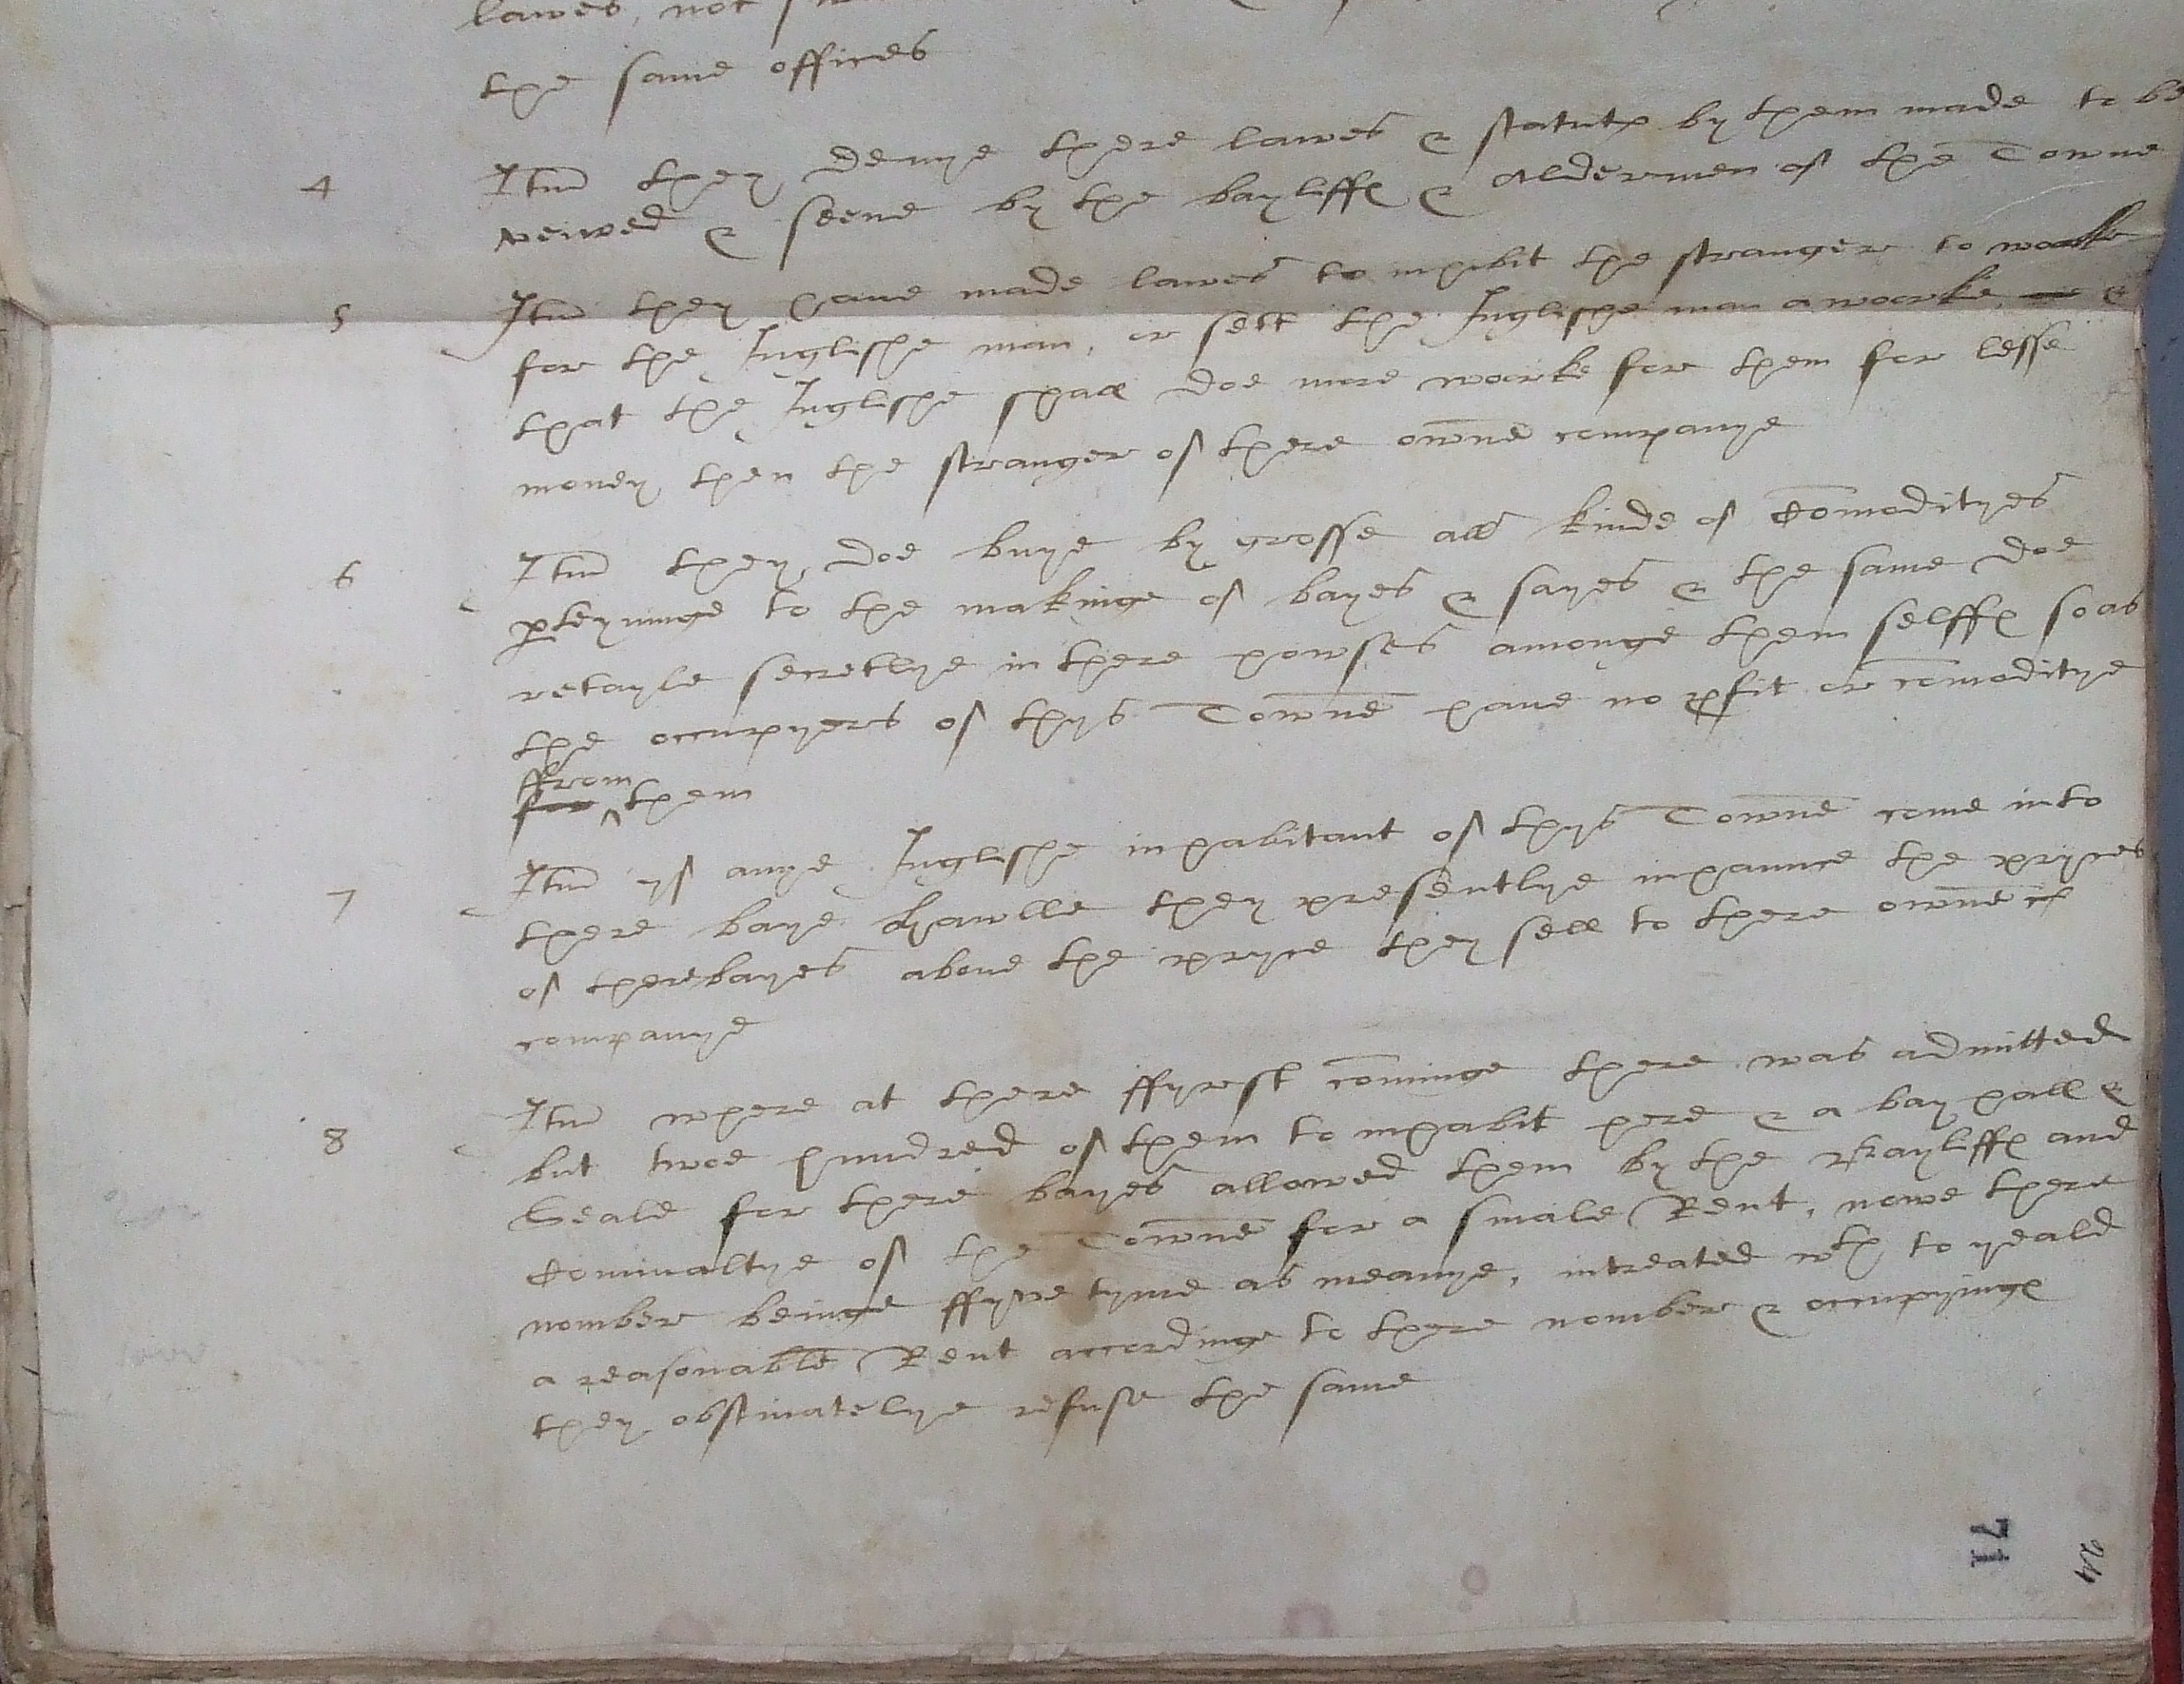 lawes, not
the same offices
4 Itm they denye there lawes & statut by them made to be
veiwed & seene by the bayliff & Aldermen of the Towne
5 Itm they have made lawes to inhibit the stranger to worke
for the Inglishe man, or sett the Inglishe man a woorke, &
that the Inglishe shall doe more woorke for them for lesse
money then the stranger of there owne companye
6 Itm they doe buye by grosse all kinde of Comodityes
pteyninge to the makinge of bayes & sayes & the same doe
retayle secretlye in there howses amonge them selff so as
the occupyers of thys Towne have no pfit or comoditye
ffrom
for ^ them
7 Itm yf anye Inglishe inhabitant of thys Towne come into
there baye hawlle they presentlye inhaunce the pryces
of there bayes above the pryce they sell to there owne
companye
8 Itm where at there ffyrst cominge there was admitted
but twoe hundred of them to inhabit here & a bay hall &
Seale for there bayes allowed them by the Bayliff and
Cominaltye of the Towne for a smale Rent, nowe there
nomber beinge ffyve tyme as meanye, intreated wth to yeald
a reasonable Rent accordinge to there nomber & occupying
they obstinatelye refuse the same
71
24